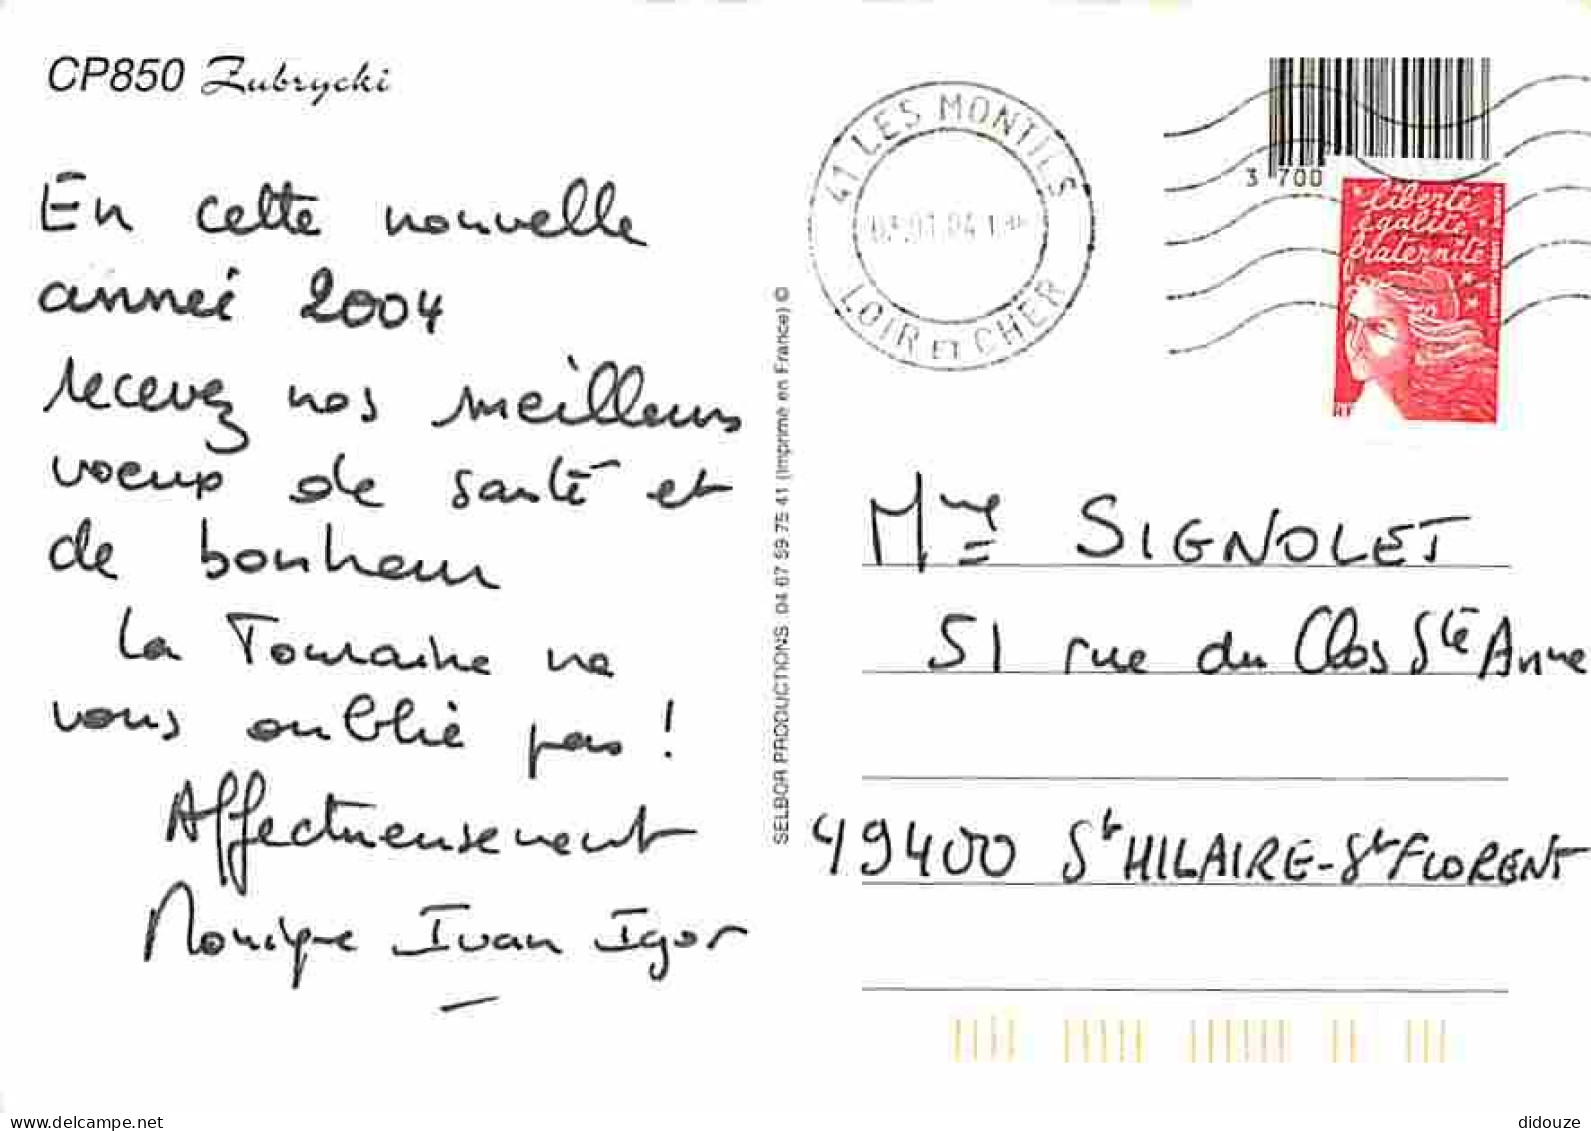 CP850 Zubrycki
En cette nouvelle
année 2004
recevez nos meilleurs
voeux de santé et
de bonheur
La Touraine ne
vous oublie pas !
Affectueusement
Monique Ivan Igor
SELBOR PRODUCTIONS 04 67 59 75 41 (Imprimé en France) ©
41 LES MONTILS
LOIR ET CHER
3 700
liberté
égalité
fraternité
RF
Mme SIGNOLET
51 rue du Clos Ste Anne
49400 St HILAIRE-St FLORENT
www.delcampe.net
didouze